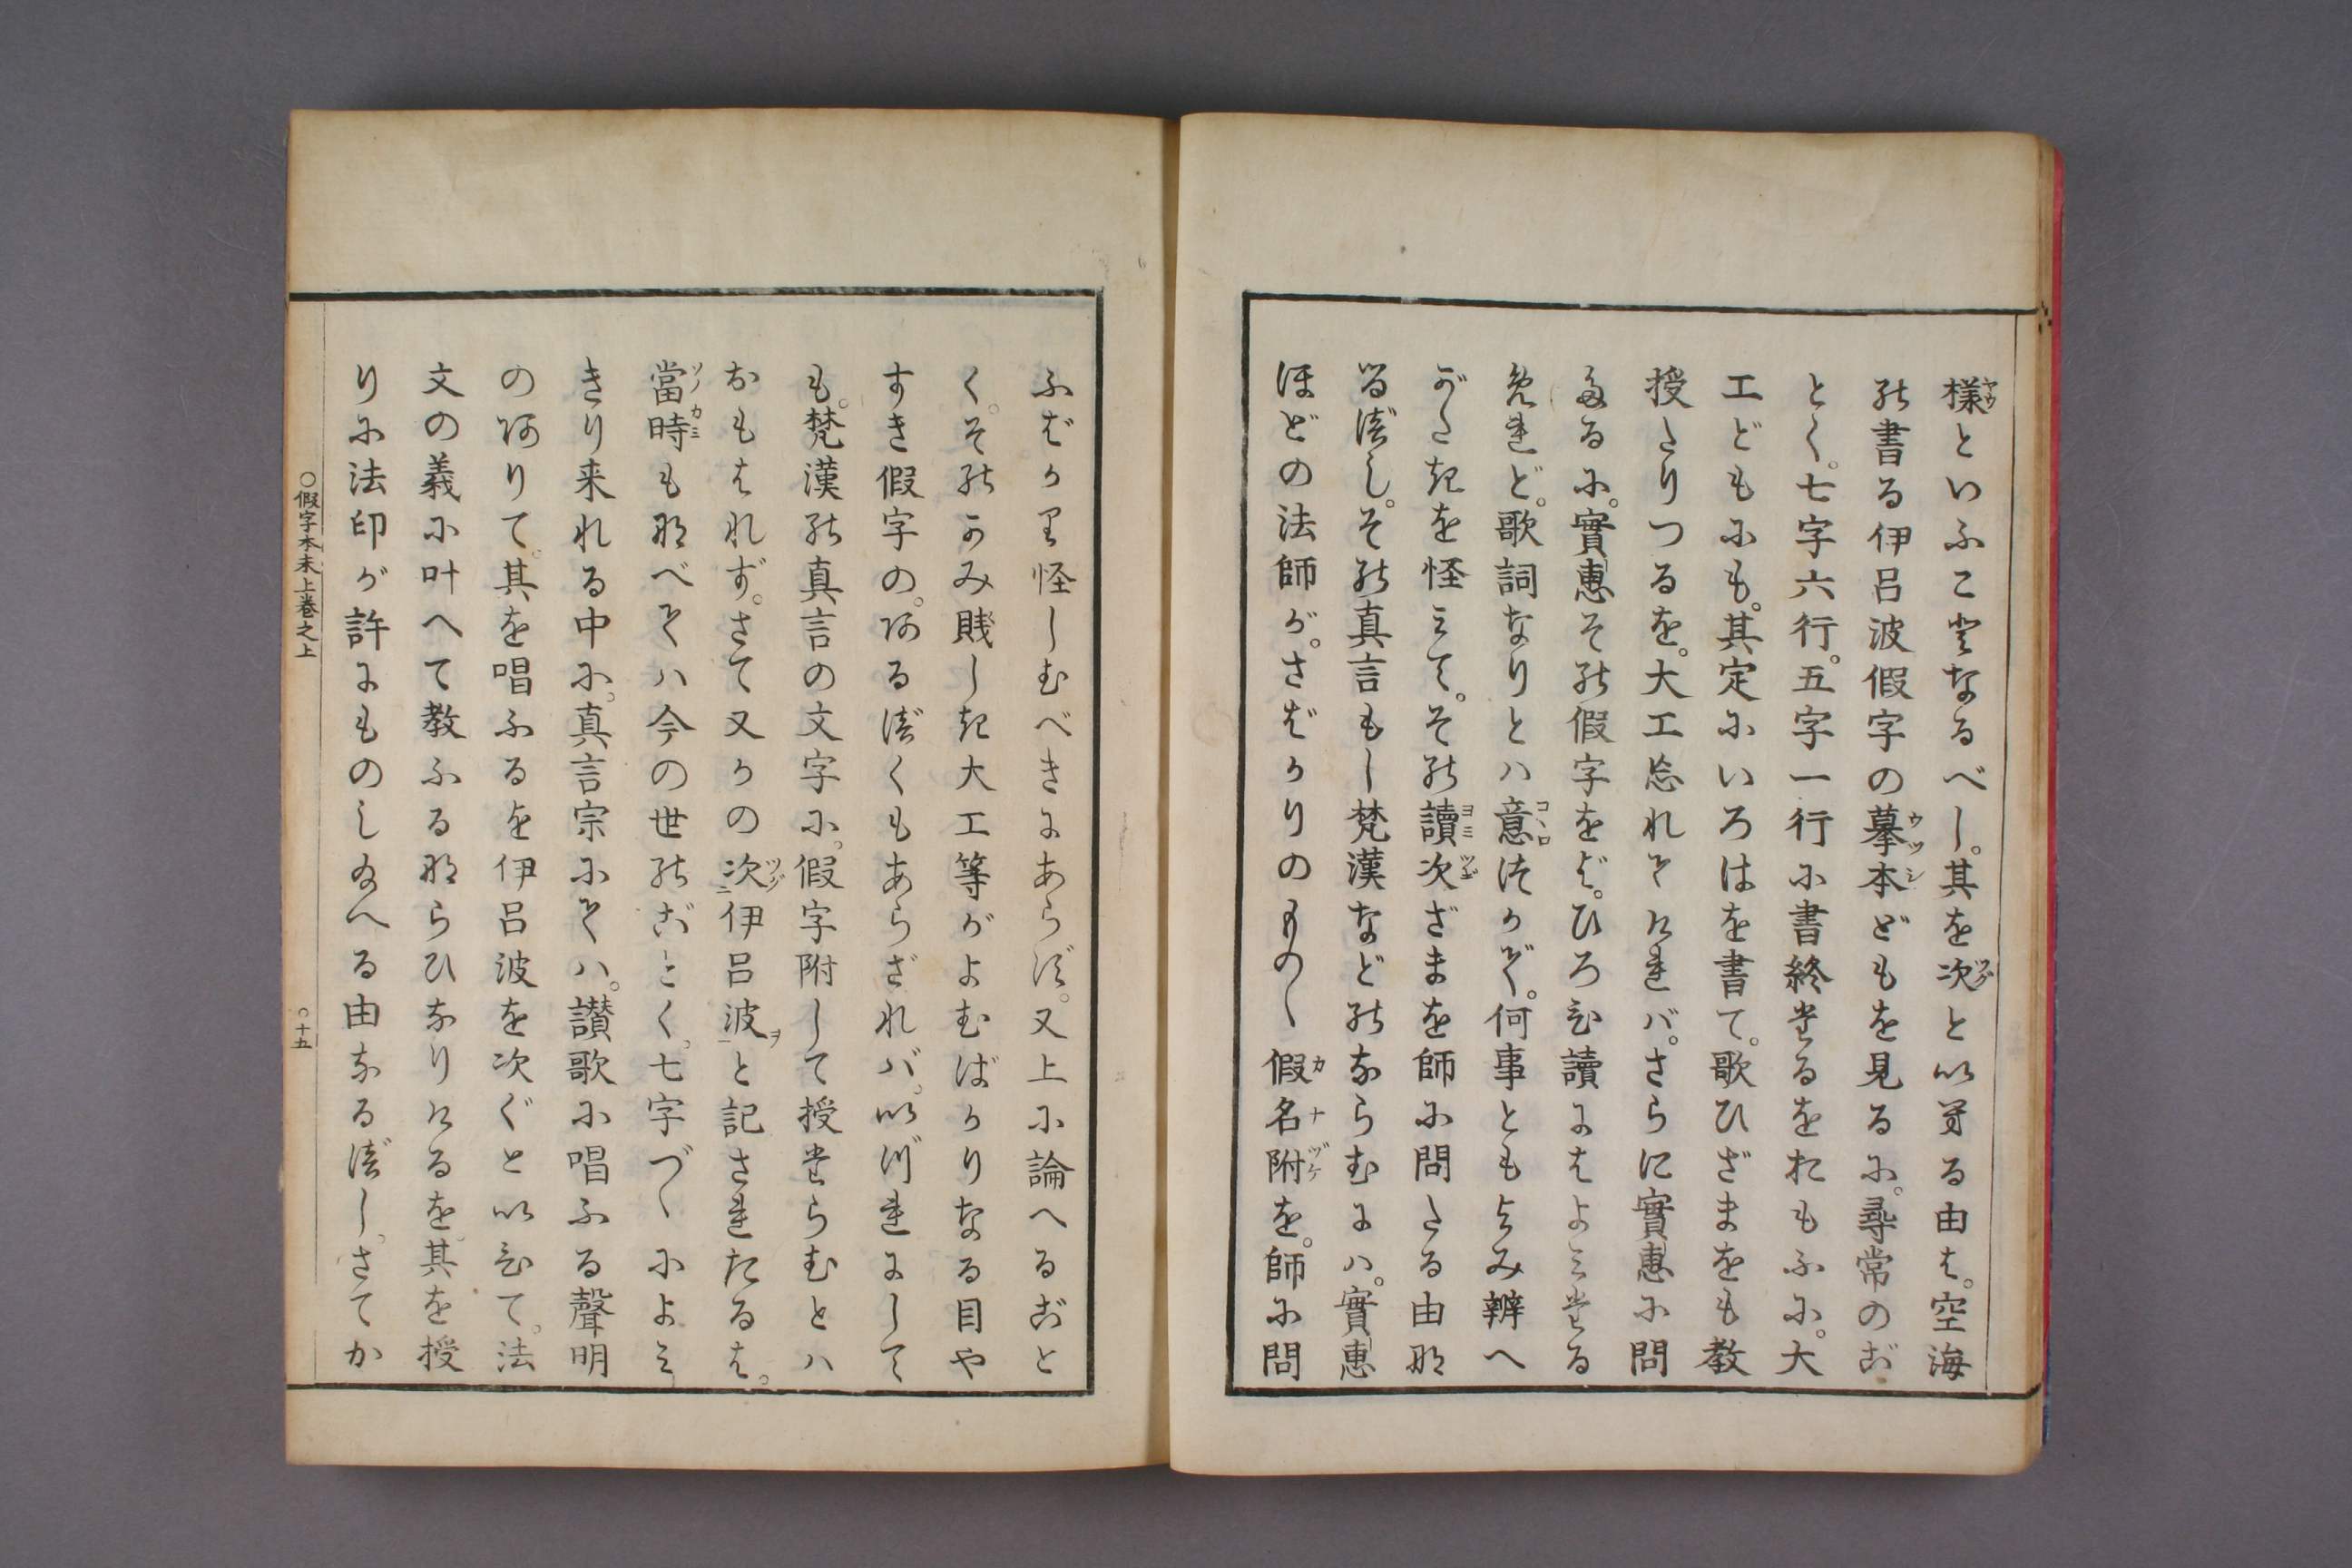 様といふことなるべし。其を次と以牟る由は。空海
の書る伊呂波假字の摹本どもを見るに。尋常のご
とく。七字六行。五字一行に書終たるをおもふに。大
工どもにも。其定にいろはを書て。歌ひざまをも教
授たりつるを。大工忘れそけれバ。さらに實惠に問
たるに。實惠その假字をば。ひろひ讀にはよミたる
めれど。歌詞なりとハ意得かぞ。何事ともよみ辨へ
がたきを怪ミて。その讀次ざまを師に問たる由な
るべし。その真言もし梵漢などのならむにハ。實惠
ほどの法師が。さばかりのものゝ假名附を。師に問
ふばかり怪しむべきにあらず。又上に論へるごと
く。そのかみ賤しき大工等がよむばかりなる目や
すき假字の。あるべくもあらざれバ。いづれにして
も。梵漢の真言の文字に。假字附して授たらむとハ
おもはれず。さて又かの次伊呂波と記されたるは。
當時もなべてハ今の世のごとく。七字づゝによミ
きり来れる中に。真言宗にてハ。讃歌に唱ふる聲明
のありて。其を唱ふるを伊呂波を次ぐと以ひて。法
文の義に叶へて教ふるならひなりけるを。其を授
りに法印が許にものしたまへる由なるべし。さてか
○假字本末上巻之上
○十五